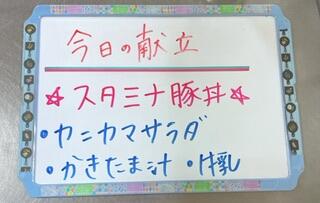 今日の献立
☆スタミナ豚丼☆
・カニカマサラダ
・かきたま汁 ・牛乳